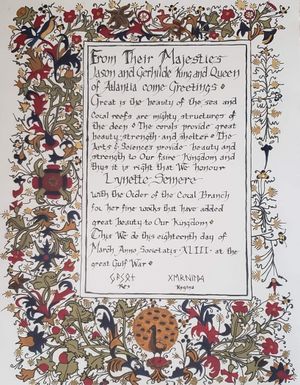 From Their Majesties
Jason and Gerhilde King and Queen
of Atlantia come Greetings
Great is the beauty of the sea and
Coral reefs are mighty structures of
the deep The corals provide great
beauty, strength and shelter The
Arts & Sciences provide beauty and
strength to Our fame Kingdom and
thus it is right that We honour
Lynette Semere
with the Order of the Coral Branch
for her fine works that have added
great beauty to Our Kingdom
This We do this eighteenth day of
March Anno Societatis XLIII at the
great Gulf War
Rex Regina